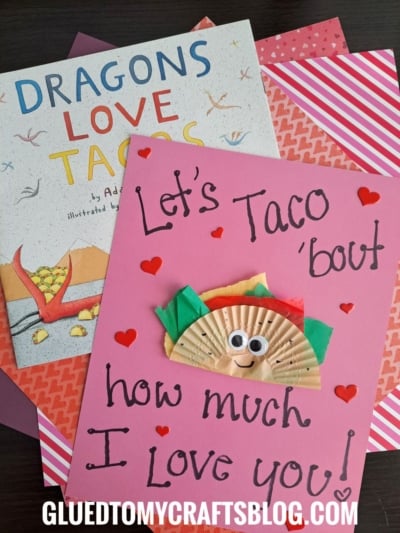 DRAGONS
LOVE
TACOS
by Ad
illustrated by
Let's Taco
'bout
how much
I Love you!
GLUEDTOMYCRAFTSBLOG.COM